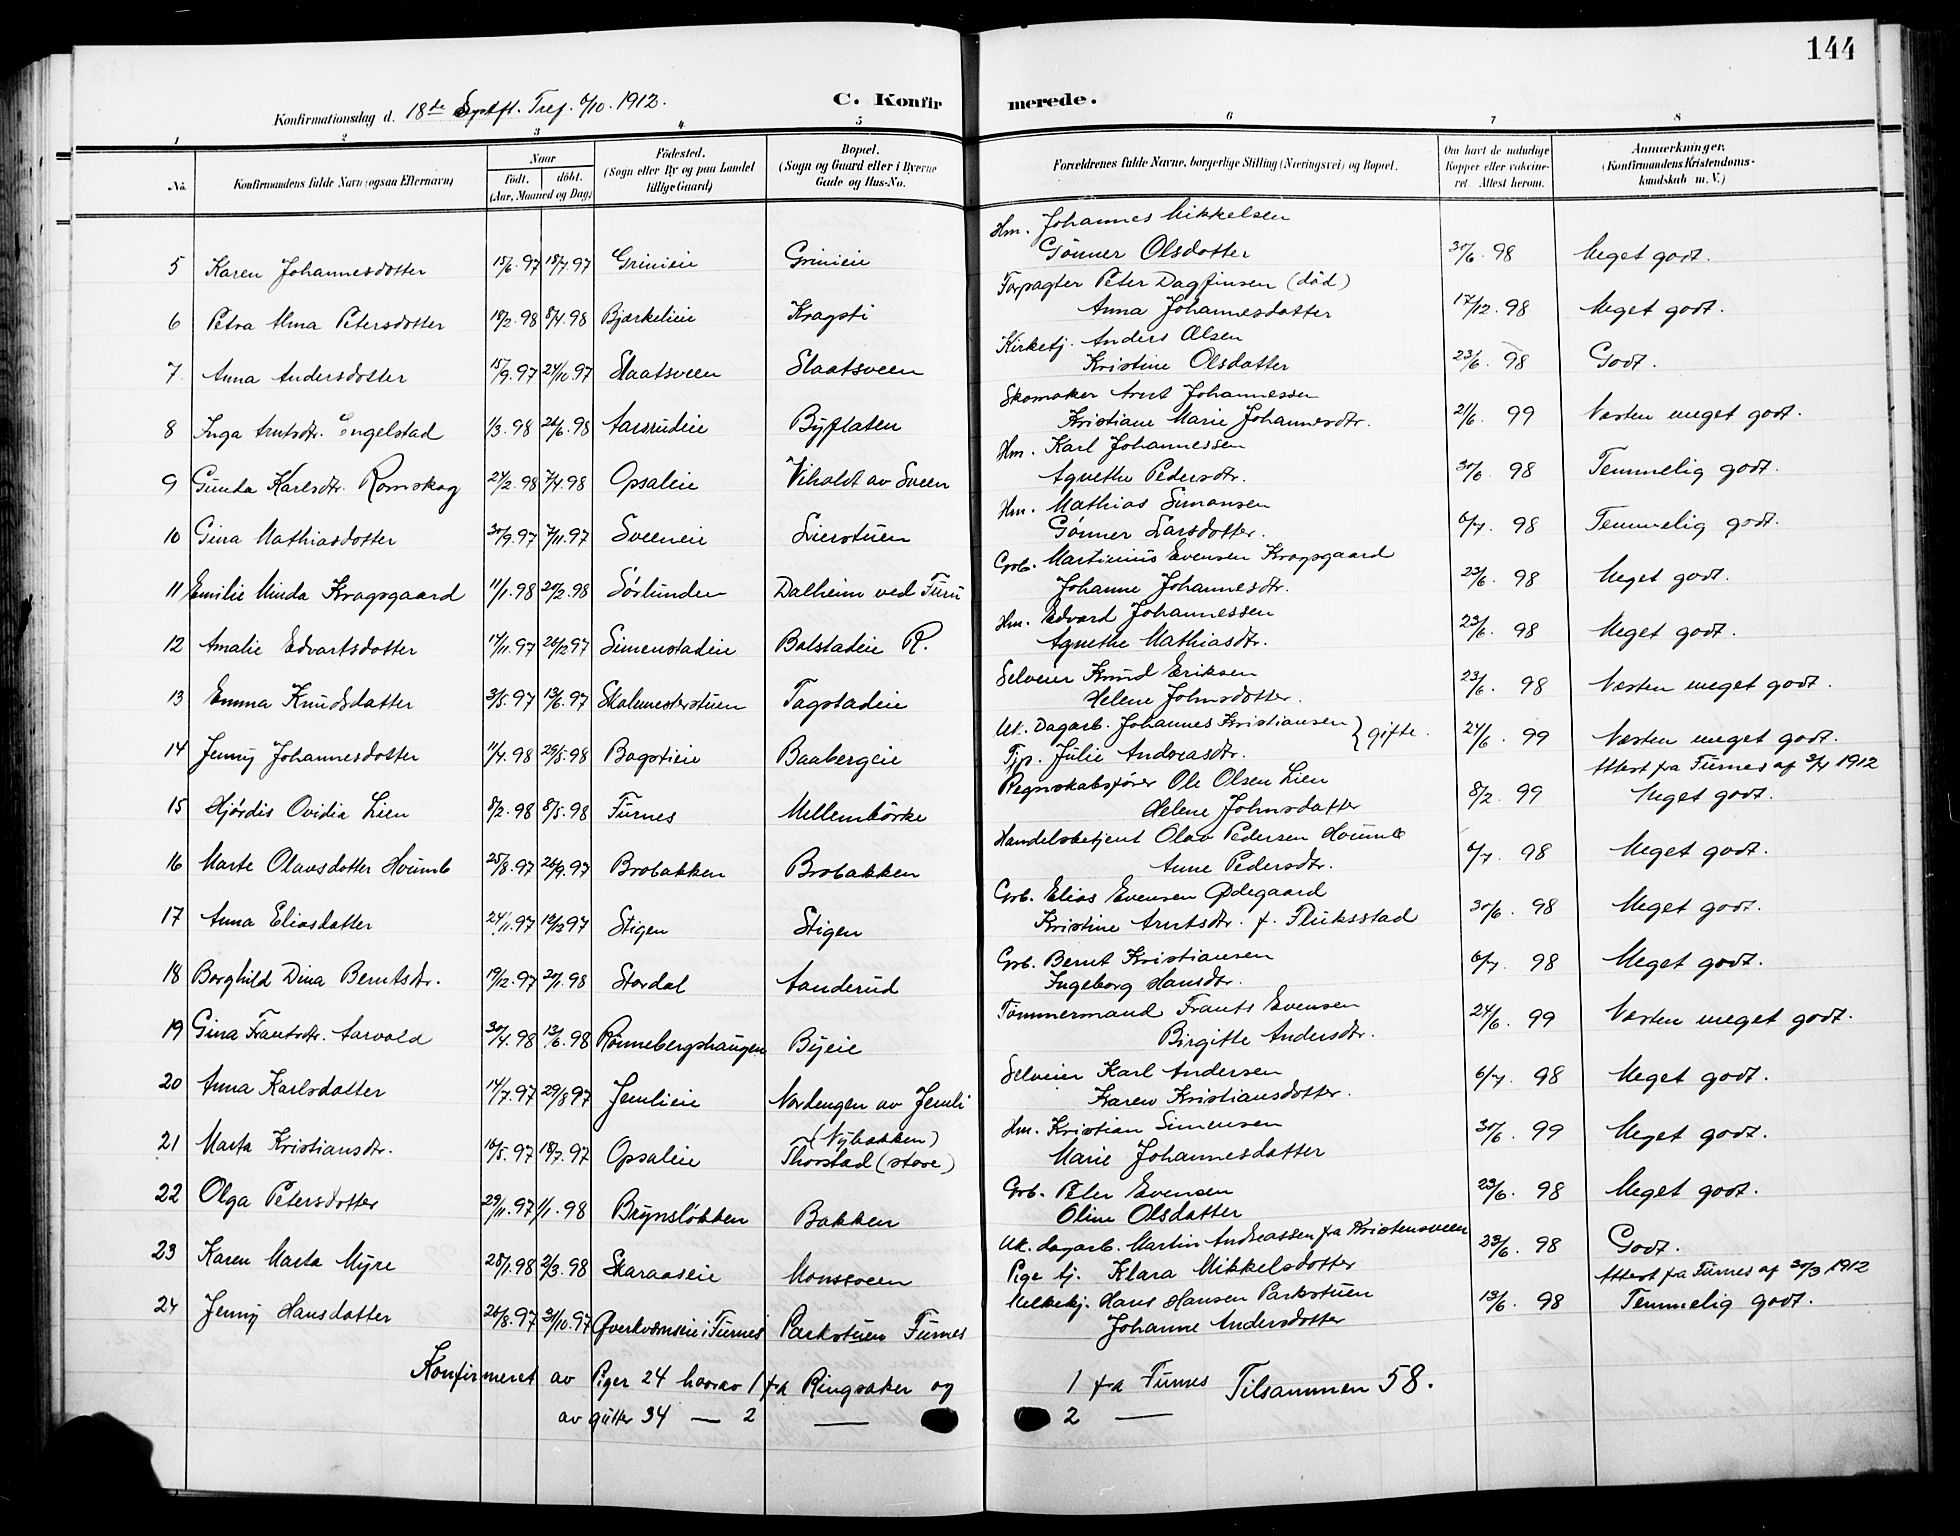 144
Konfirmationsdag d. 18de S. eft. Tref. 6/10. 1912.
C. Konfirmerede.
1 2 3 4 5 6 7 8
No. Konfirmandens fulde Navn (ogsaa Efternavn)
Naar født. døbt. (Aar, Maaned og Dag)
Fødested. (Sogn eller By og paa Landet tillige Gaard)
Bopæl. (Sogn og Gaard eller i Byerne Gade og Hus-No.
Forældrenes fulde Navne, borgerlige Stilling (Næringsvei) og Bopæl.
Om havt de naturlige Kopper eller vakcineret Attest herom.
Anmerkninger. (Konfirmandens Kristendomskundskab m. V.)
Hm. Johannes Mikkelsen
5 Karen Johannesdotter 15/6.97 18/7.97 Grinieie Grinieie Gønner Olsdotter 30/6.98 Meget godt.
Forpagter Peter Dagfinsen (død)
6 Petra Alma Petersdotter 18/2.98 8/4.98 Bjørkelieie Kragsti Anna Johannesdatter 17/12.98 Meget godt.
Kirketj. Anders Olsen
7. Anna Andersdotter 15/9.97 24/10.97 Slaatsveen Slaatsveen Kristine Olsdatter 23/6.98 Godt.
Skomaker Arnt Johannessen
8 Inga Arntsdtr. Engelstad 1/3.98 26/6.98 Aasrudeie Byflaten Kristiane Marie Johannesdtr. 21/6.99 Næsten meget godt.
Hm. Karl Johannessen
9 Gunda Karlsdtr. Romskog 24/2.98 7/4.98 Opsaleie Viholdt av Sveen Agnethe Pedersdtr. 30/6.98 Temmelig godt.
Hm. Mathias Simonsen
10 Gina Mathiasdotter 30/9.97 7/11.97 Sveeneie Lierstuen Gønner Larsdotter. 6/7.98 Temmelig godt.
Grb. Martinius Evensen Kragsgaard
11 Emilie Minda Kragsgaard 11/1.98 20/2.98 Sørlunden Dalheim ved Furu Johanne Johannesdtr. 23/6.98 Meget godt.
Hm. Edvard Johannessen
12 Amalie Edvartsdotter 17/11.97 26/12.97 Simenstadeie Bolstadeie R. Agnethe Mathiasdtr. 23/6.98 Meget godt.
Selveier Knud Eriksen
13 Emma Knudsdatter 3/5.97 13/6.97 Skolemesterstuen Tagstadeie Helene Johnsdotter. 23/6.98 Næsten meget godt.
Uk. Dagarb. Johannes Kristiansen } gifte.
14 Jenny Johannesdotter 11/4.98 29/5.98 Bagstieie Baabergeie Tjp. Julie Andreasdtr. 24/6.99 Næsten meget godt.
Attest fra Furnes af 3/4 1912
Regnskabsfører Ole Olsen Lien
15 Hjørdis Ovidia Lien 8/2.98 8/5.98 Furnes Mellembørke Helene Johnsdatter 8/2.99 Meget godt.
Handelsbetjent Olav Pedersen Hoúmb
16 Marte Olavsdotter Houmb 25/8.97 26/9.97 Brobakken Brobakken Anne Pedersdtr. 6/7.98 Meget godt.
Grb. Elias Evensen Ødegaard
17 Anna Eliasdatter 24/11.97 19/12.97 Stigen Stigen Kristine Arntsdtr. f. Fluksstad 30/6.98 Meget godt.
Grb. Bernt Kristiansen
18 Borghild Dina Berntsdtr. 19/12.97 20/1.98 Stordal Aanderud Ingeborg Hansdtr. 6/7.98 Meget godt.
Tømmermand Frants Evensen
19 Gina Frantsdtr. Aarvold 30/4.98 13/6.98 Rønnebergshaugen Byeie Birgitte Andersdtr. 24/6.99 Næsten meget godt.
Selveier Karl Andersen
20 Anna Karlsdatter 14/7.97 29/8.97 Jemlieie Nordengen av Jemli Karen Kristiansdotter. 6/7.98 Meget godt.
(Nybakken) Hm. Kristian Simensen
21 Marta Kristiansdtr. 16/5.97 18/7.97 Opsaleie Thorstad (store) Marie Johannesdatter 30/6.99 Meget godt.
Grb. Peter Evensen
22 Olga Petersdotter 29/11.97 1/1.98 Brynsløkken Bakken Oline Olsdatter 23/6.98 Meget godt.
Uk. dagarb. Martin Andreassen fra Kristensveen
23 Karen Marta Myre 28/1.98 2/3.98 Skaraaseie Monsveen Pige tj. Klara Mikkelsdotter 23/6.98 Godt.
Attest fra Furnes af 30/3 1912
Melkekj. Hans Hansen Parkstuen
24 Jenny Hansdatter 26/8.97 31/10.97 Qverkvernseie i Furnes Parkstuen Furnes Johanne Andersdotter 13/6.98 Temmelig godt.
Konfirmeret av Piger 24 hvorav 1 fra Ringsaker og 1 fra Furnes Tilsammen 58.
av gutter 34 — 2 — 2 —